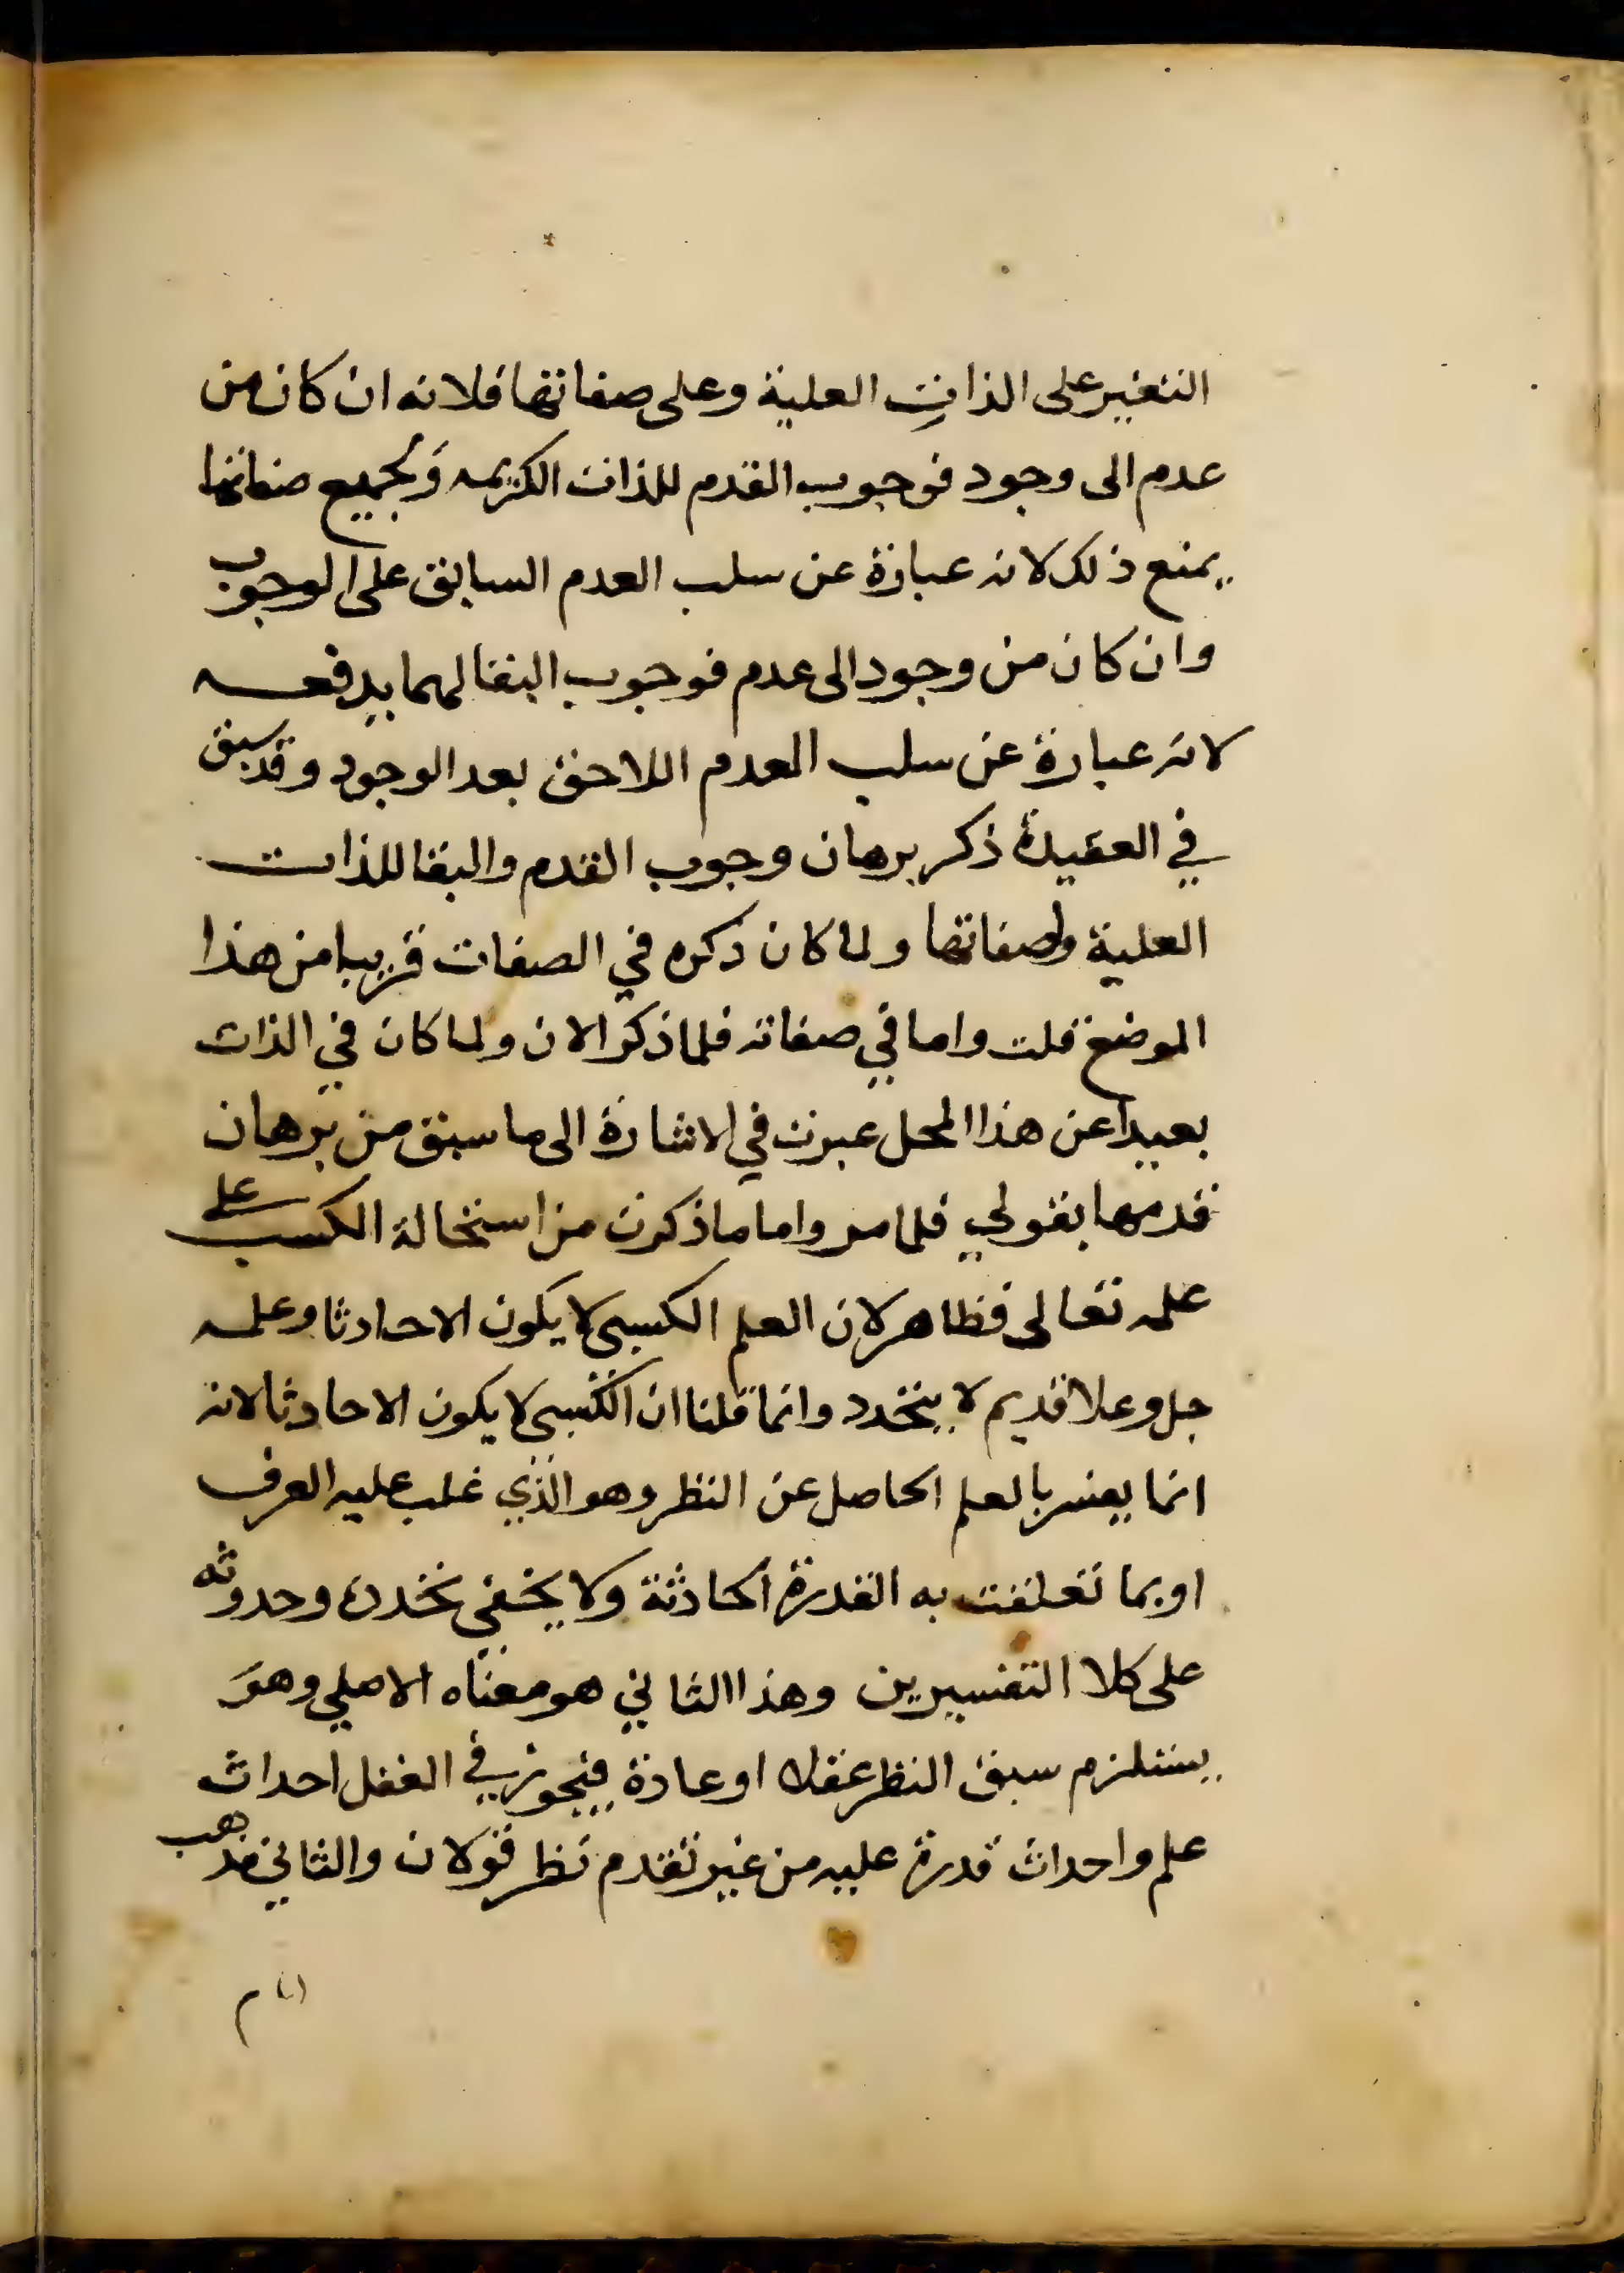 التغير على الذات العلية وعلى صفاتها فلانه ان كان من
عدم الى وجود فوجوب القدم للذات الكريمه ولجميع صفاتها
يمنع ذلك لانه عبارة عن سلب العدم السابق على الوجوب
وان كان من وجود الى عدم فوجوب البقا لهما يدفعه
لانه عبارة عن سلب العدم اللاحق بعد الوجود وقد سبق
في العقيدة ذكر برهان وجوب القدم والبقا للذات
العلية ولصفاتها ولما كان ذكره في الصفات قريبا من هذا
الموضع قلت واما في صفاته فلما ذكر الان ولما كان في الذات
بعيدا عن هذا المحل عبرت في الاشارة الى ما سبق من برهان
قدمها بقولي فلما مر واما ما ذكرت من استحالة الكسب على
علمه تعالى فظاهر لان العلم الكسبي لا يكون الا حادثا وعلمه
جل وعلا قديم لا يتجدد وانما قلنا ان الكسبي لا يكون الا حادثا لانه
انما يفسر بالعلم الحاصل عن النظر وهو الذي غلب عليه العرف
او بما تعلقت به القدرة الحادثة ولا يخفي تجدده وحدوثه
على كلا التفسيرين وهذا الثاني هو معناه الاصلي وهو
يستلزم سبق النظر عقلا او عادة فيجوز في العقل احداث
علم واحداث قدرة عليه من غير تقدم نظر قولان والثاني مذهب